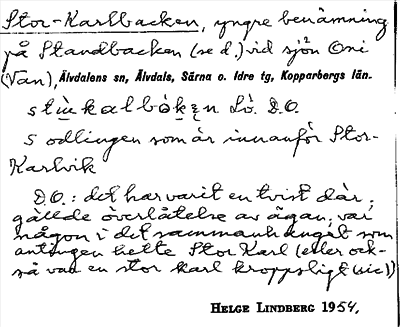 Stor-Karlbacken, yngre benämning
på Standbacken (se d.) vid sjön Oni
(Van), Älvdalens sn, Älvdals, Särna o. Idre tg, Kopparbergs län.
Lò. D.O.
S odlingen som är innanför Stor-
Karlvik
D.O.: det har varit en tvist där,
gällde överlåtelse av ägan, var
någon i det sammanhanget som
antingen hette Stor Karl (eller ock-
så var en stor karl kroppsligt (sic))
HELGE LINDBERG 1954,